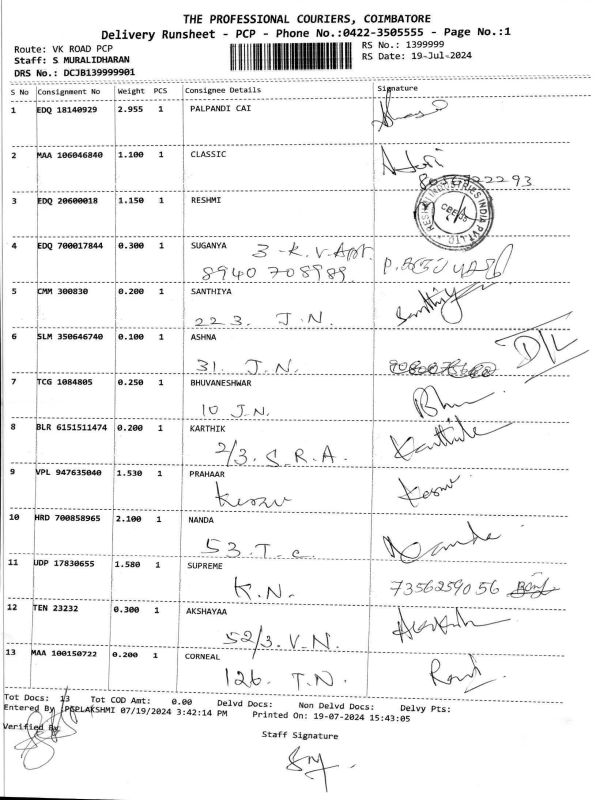 THE PROFESSIONAL COURIERS, COIMBATORE
Delivery Runsheet - PCP - Phone No.:0422-3505555 - Page No.:1
Route: VK ROAD PCP
RS No.: 1399999
Staff: S MURALIDHARAN
RS Date: 19-Jul-2024
DRS No.: DCJB139999901
S No Consignment No Weight PCS Consignee Details Signature
1 EDQ 18140929 2.955 1 PALPANDI CAI
2 MAA 106046840 1.100 1 CLASSIC
3 EDQ 20600018 1.150 1 RESHMI
INDUSTRIES INDIA PVT. LTD.
CBE
4 EDQ 700017844 0.300 1 SUGANYA 3-K.V.Apt.
8940708989
5 CMM 300830 0.200 1 SANTHIYA
223. J.N.
6 SLM 350646740 0.100 1 ASHNA
31. J.N.
D/L
7 TCG 1084805 0.250 1 BHUVANESHWAR
10 J.N.
8 BLR 6151511474 0.200 1 KARTHIK
2/3. S.R.A. Karthik
9 VPL 947635040 1.530 1 PRAHAAR
10 HRD 700858965 2.100 1 NANDA
53. T.C.
11 UDP 17830655 1.580 1 SUPREME
K.N. 7356259056
12 TEN 23232 0.300 1 AKSHAYAA
52/3. V.N.
13 MAA 100150722 0.200 1 CORNEAL
126. T.N.
Tot Docs: 13 Tot COD Amt: 0.00 Delvd Docs: Non Delvd Docs: Delvy Pts:
Entered By :PSPLAKSHMI 07/19/2024 3:42:14 PM Printed On: 19-07-2024 15:43:05
Verified By
Staff Signature